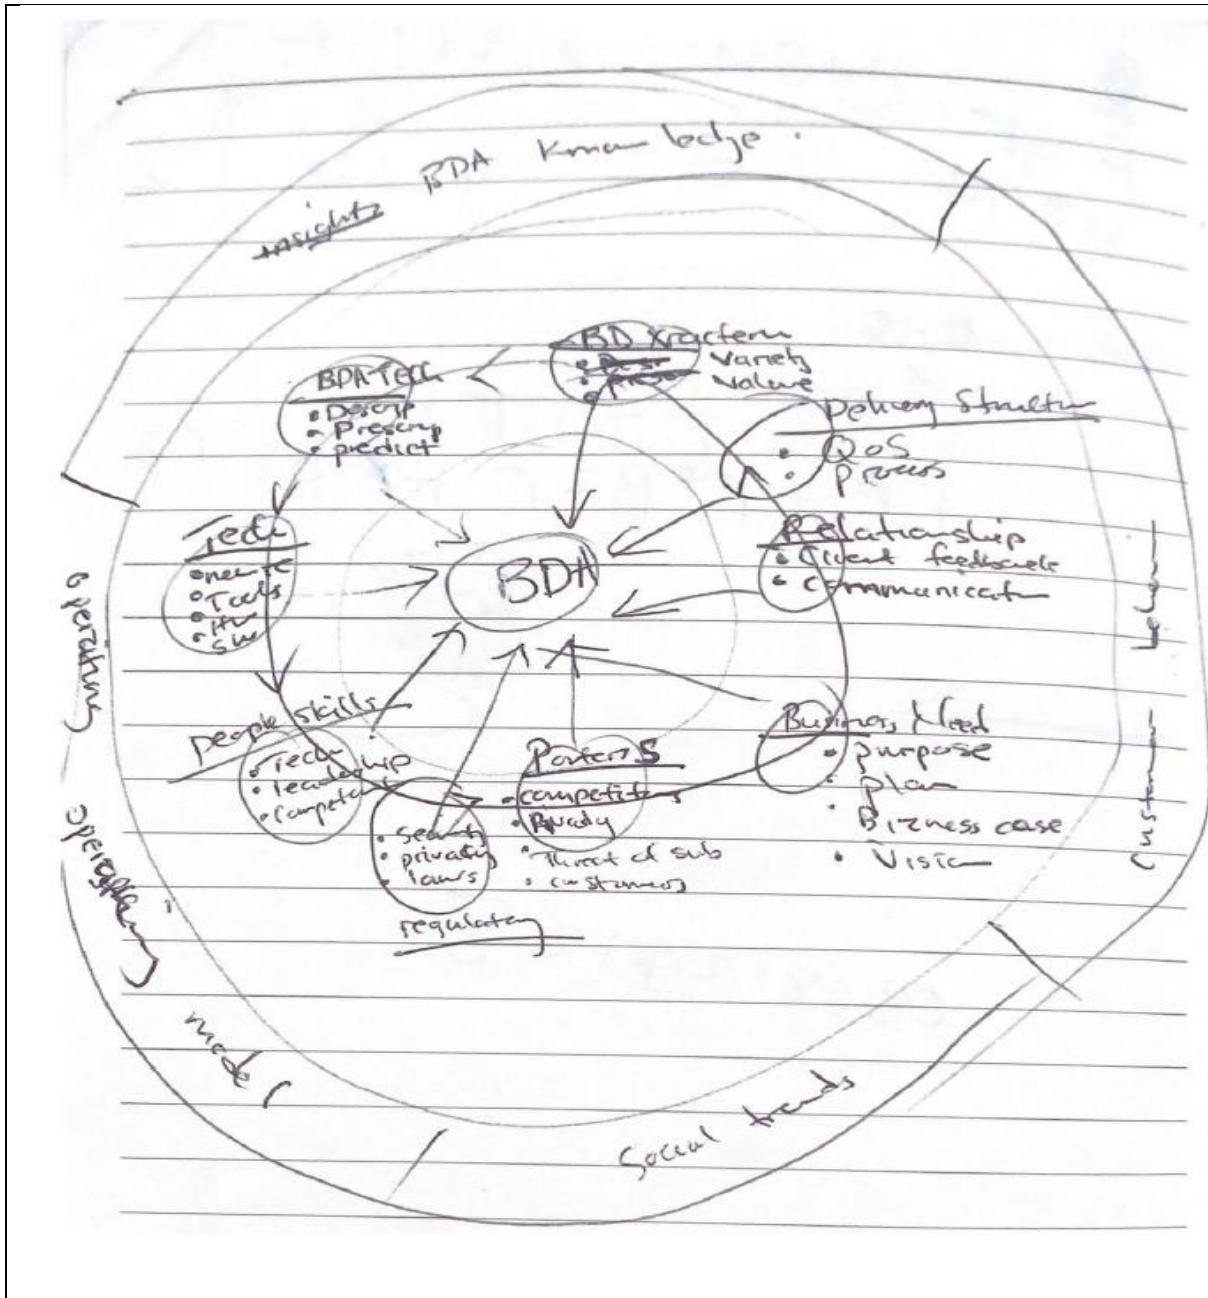 BDA Knowledge.
insights
BD Xracters
Variety
Value
BDA Tech
• Descrip
• Prescrip
• predict
Delivery Structur
• QoS
• process
Tech
• Tools
• HW
• SW
BDA
Relationship
• Client feedback
• Communicatn
people skills
• Tech
• leadership
• Competen
Porters 5
• competitors
• Rivalry
• Threat of sub
• customers
Business Need
• purpose
• plan
• Bizness case
• Vision
• security
• privacy
• laws
regulatory
operating
operating
model
Social trends
Customer behav